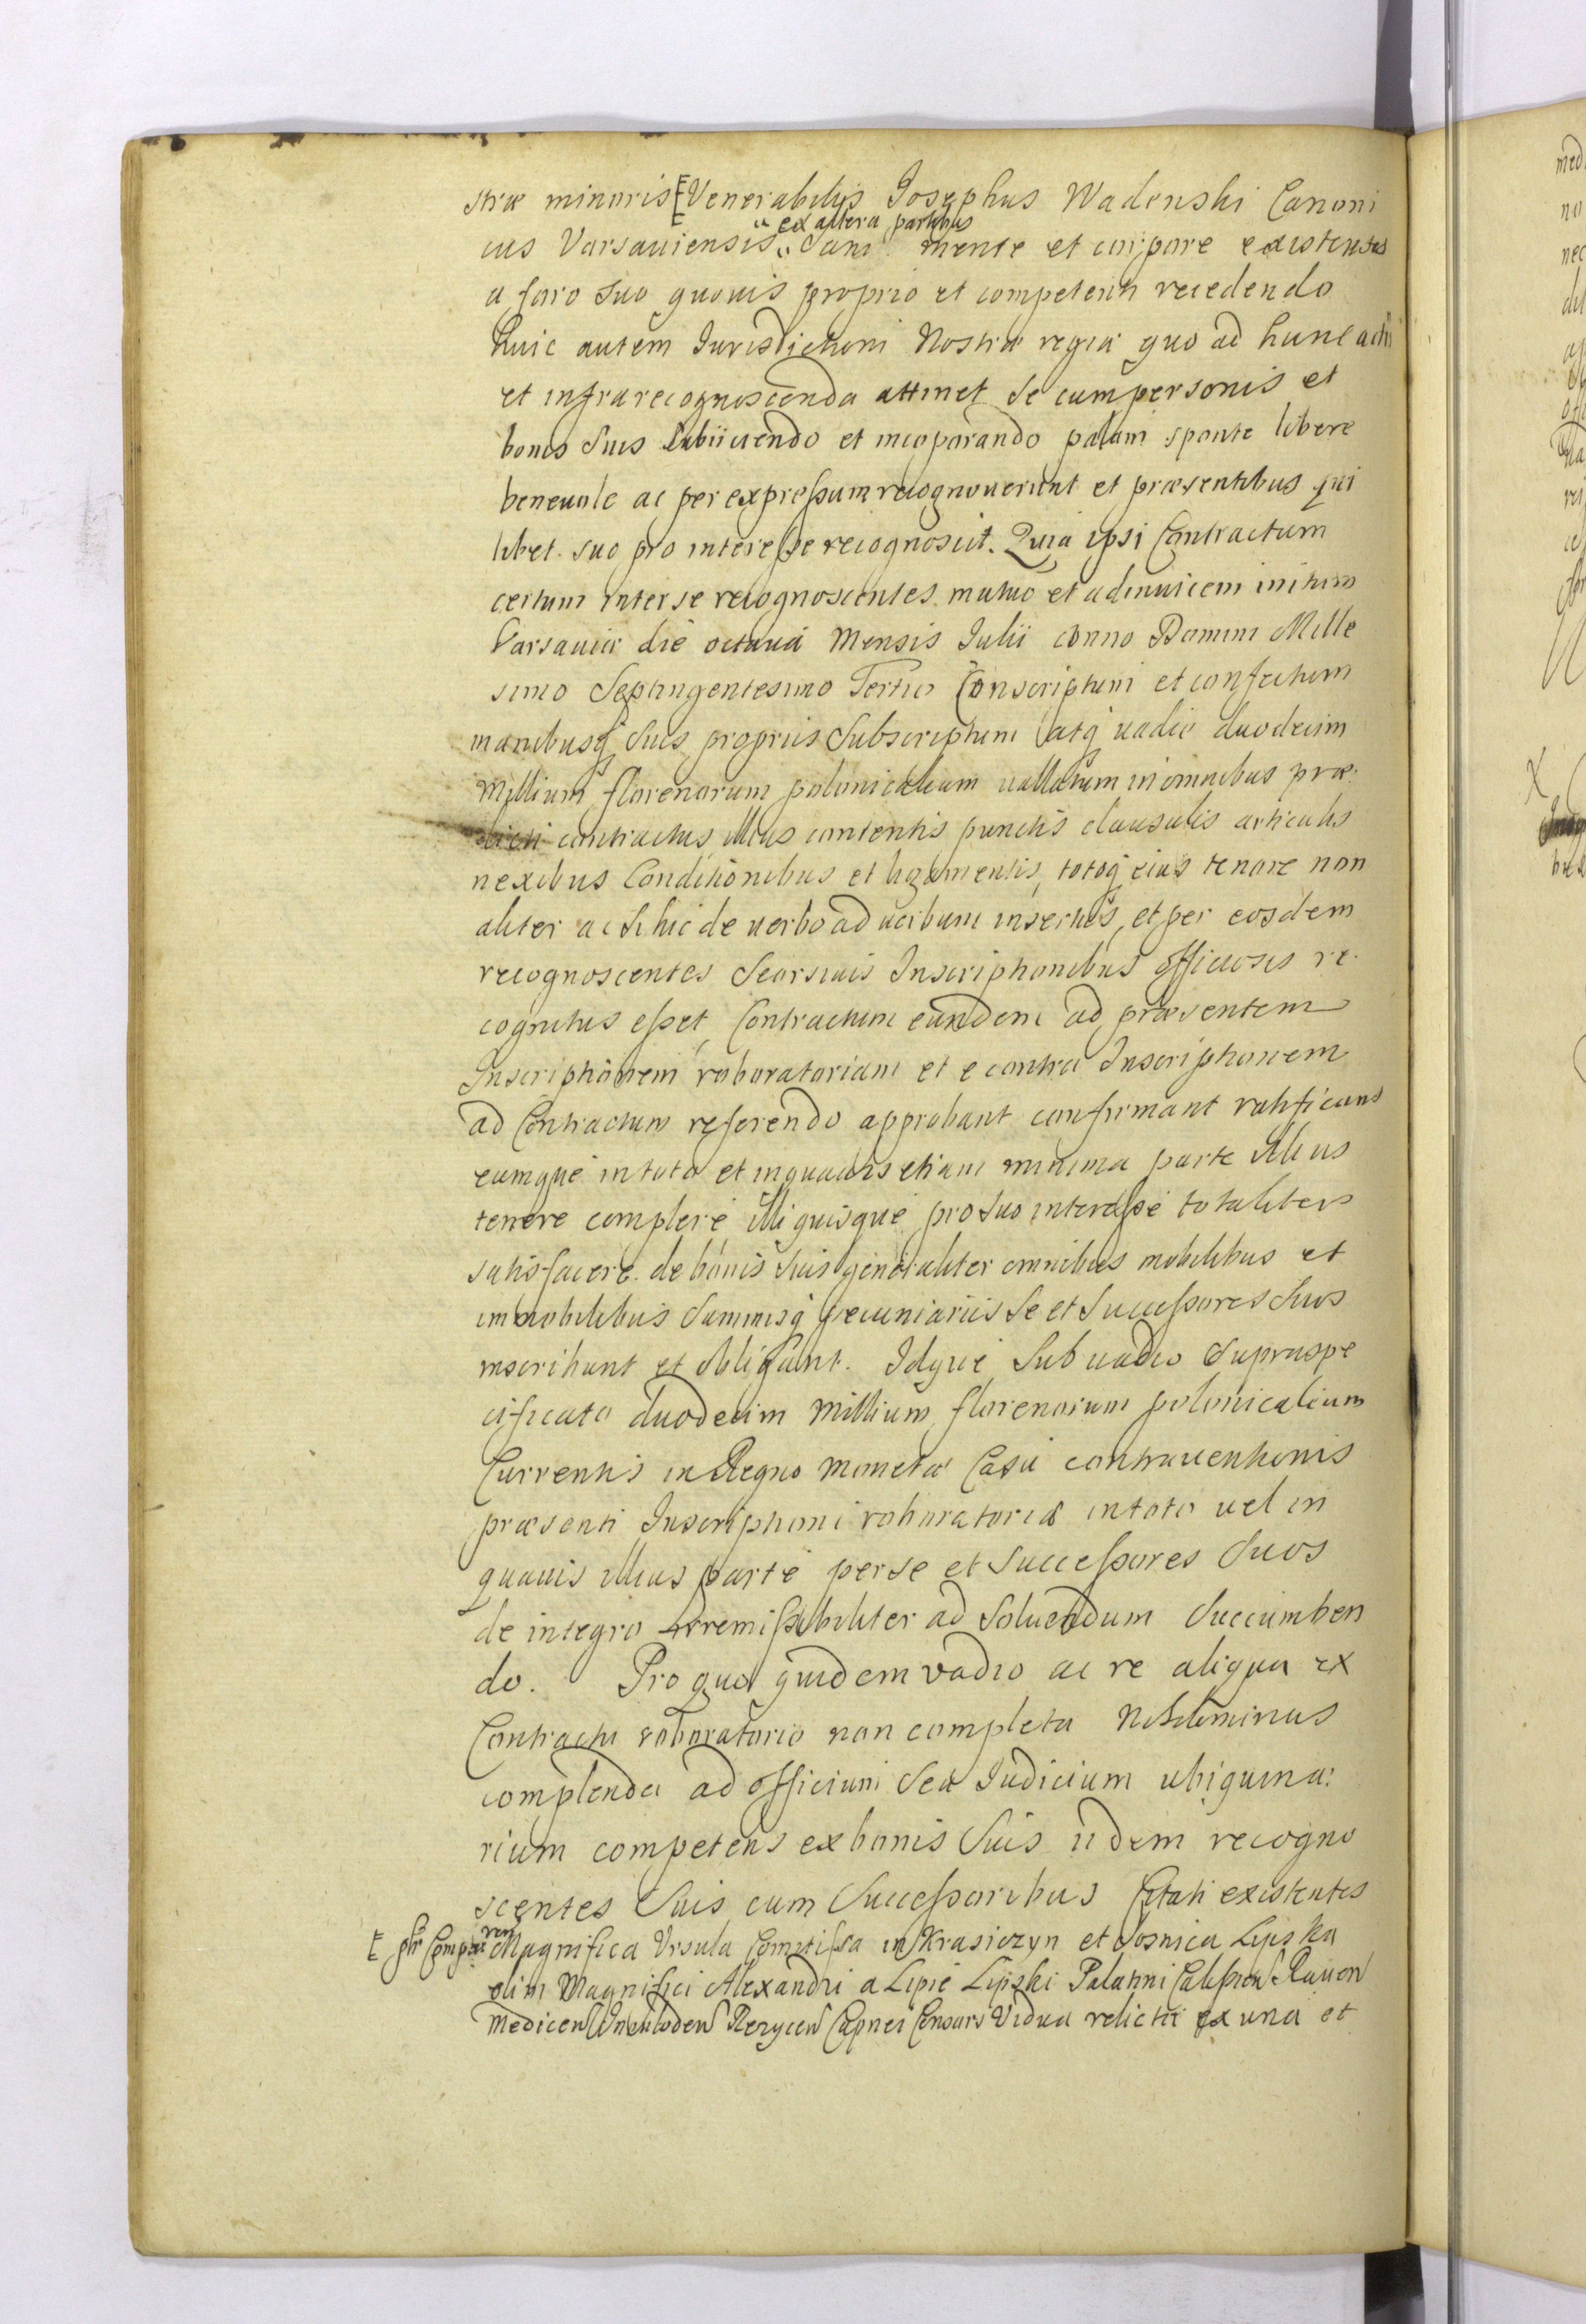 stræ minoris [Venerabilis Josephus Wadenski Canoni
cus Varsauiensis " ex altera partibus Sani mente et corpore existentes
a foro suo quouis proprio et competenti recedendo
huic autem Jurisdictioni Nostræ regiæ quo ad hunc actũ
et infrarecognoscenda attinet se cum personis et
bonis suis subiiciendo et incorporando palam sponte libere
beneuole ac per expressum recognouerunt et præsentibus qui
libet suo pro interesse recognoscit. Quia ipsi Contractum
certum inter se recognoscentes mutuo et adinuicem initum
Varsauiæ die octaua Mensis Julii Anno Domini Mille
simo Septingentesimo Tertio Conscriptum et confectum
manibusq suis propriis Subscriptum atq uadio duodecim
Millium florenorum polonicalium uallatum in omnibus præ:
dicti contractus illius contentis punctis clausulis articulis
nexibus Conditionibus et ligamentis, totoq eius tenore non
aliter ac si hic de uerbo ad uerbum insertus, et per eosdem
recognoscentes Seorsiuis Inscriptionibus officiosis re
cognitus esset, Contractum eundem ad præsentem
Inscriptionem roboratoriam et e contra Inscriptionem
ad Contractum referendo approbant confirmant ratificant
eumque in toto et in quauis etiam minima parte illius
tenere complere illi quisque pro suo interesse totaliter
satisfacere de bonis suis generaliter omnibus mobilibus et
immobilibus Summisq pecuniariis se et Successores suos
inscribunt et obligant. Idque Sub uadio supraspe
cificato duodecim Millium florenorum polonicalium
Currentis in Regno monetæ Casu contrauentionis
præsenti Inscriptioni roboratoriæ in toto uel in
quauis illius parte per se et Successores suos
de integro irremissibiliter ad soluendum Succumben
do. Pro quo quidem vadio ac re aliqua ex
Contractu roboratorio non completa Nihilominus
complenda ad officium seu Judicium ubiquina:
rium competens ex bonis suis iidem recogno
scentes suis cum Successoribus Citati existentes
[ plr Compar ren Magnifica Vrsula Comitissa in Krasiczyn et Sosnica Lipska
olim Magnifici Alexandri a Lipie Lipski Palatini Calissien Rauen
Medicen Inowloden Rzeycen Capnei Consors Vidua relicta ex una et